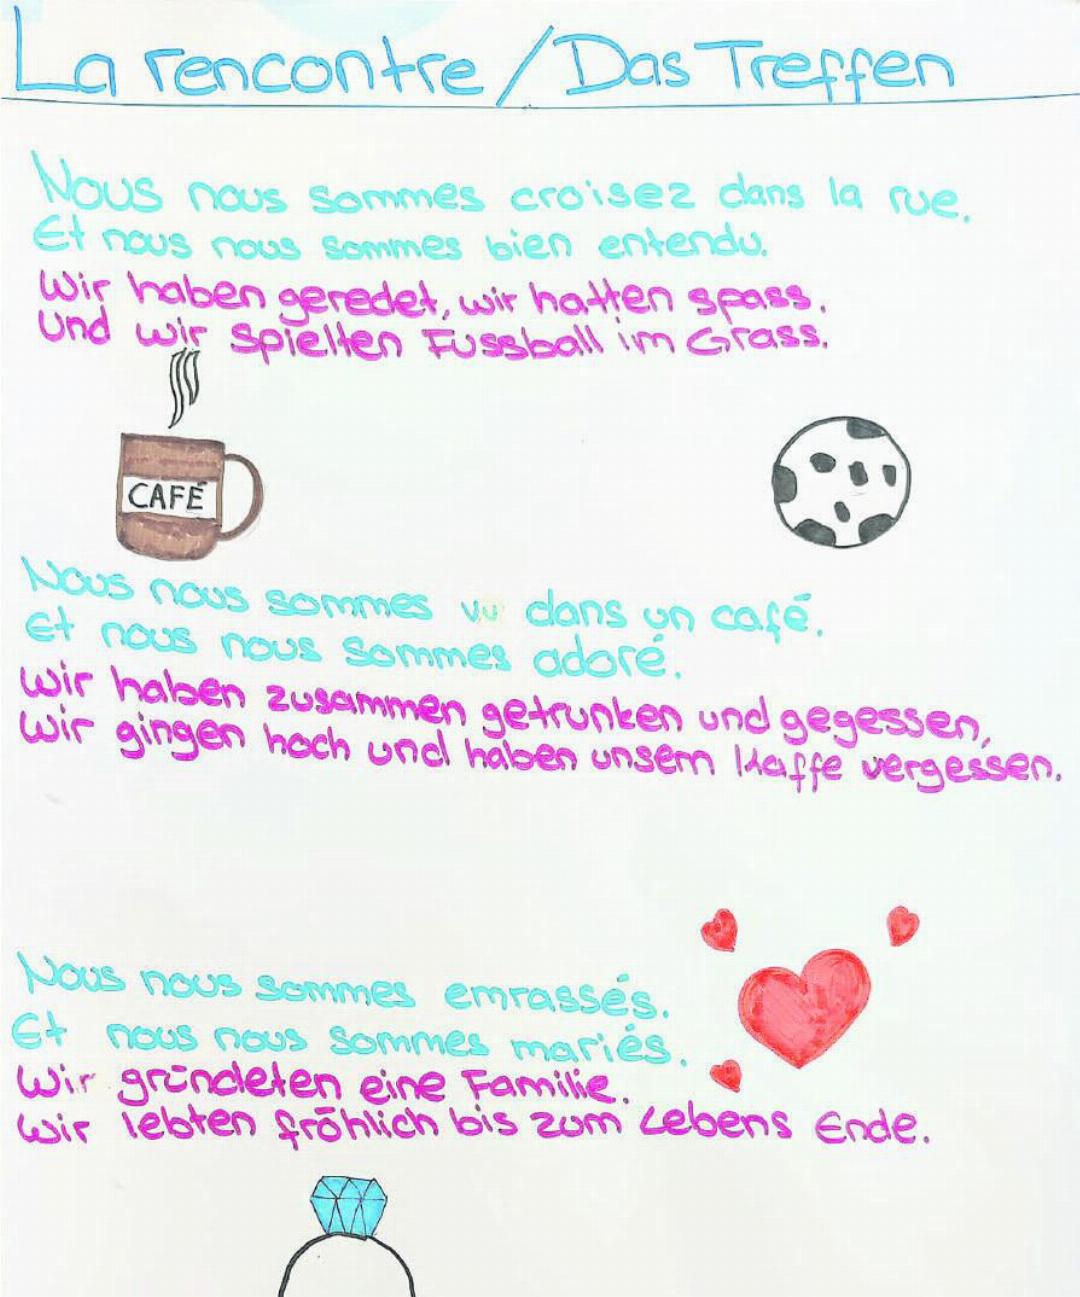 La rencontre / Das Treffen
Nous nous sommes croisez dans la rue.
Et nous nous sommes bien entendu.
Wir haben geredet, wir hatten spass.
Und wir spielten Fussball im Grass.
CAFÉ
Nous nous sommes vu dans un café.
Et nous nous sommes adoré.
Wir haben zusammen getrunken und gegessen,
Wir gingen hoch und haben unsern Kaffe vergessen.
Nous nous sommes emrassés.
Et nous nous sommes mariés.
Wir gründeten eine Familie.
Wir lebten fröhlich bis zum Lebens Ende.